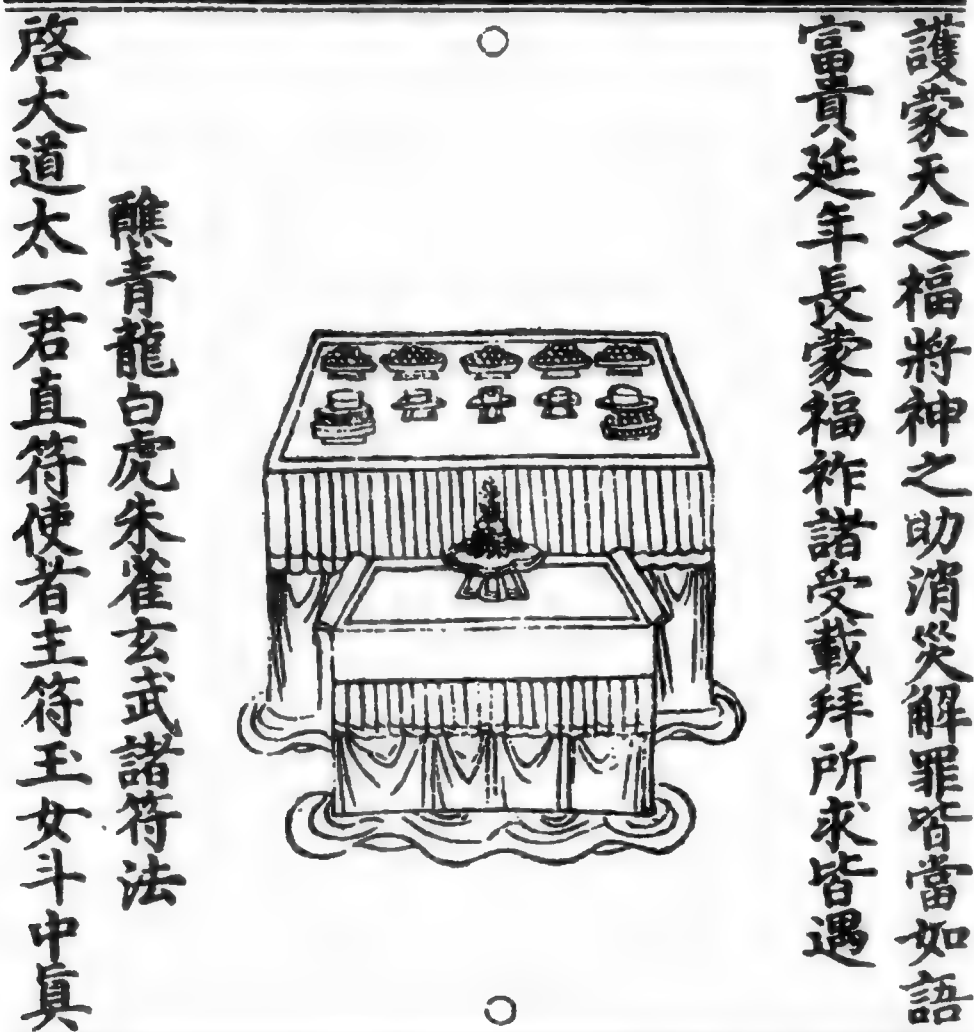 護蒙天之福將神之助消災解罪皆當如語
富貴延年長蒙福祚諸受載拜所求皆遇
醮青龍白虎朱雀玄武諸符法
啓大道太一君直符使者主符玉女斗中眞